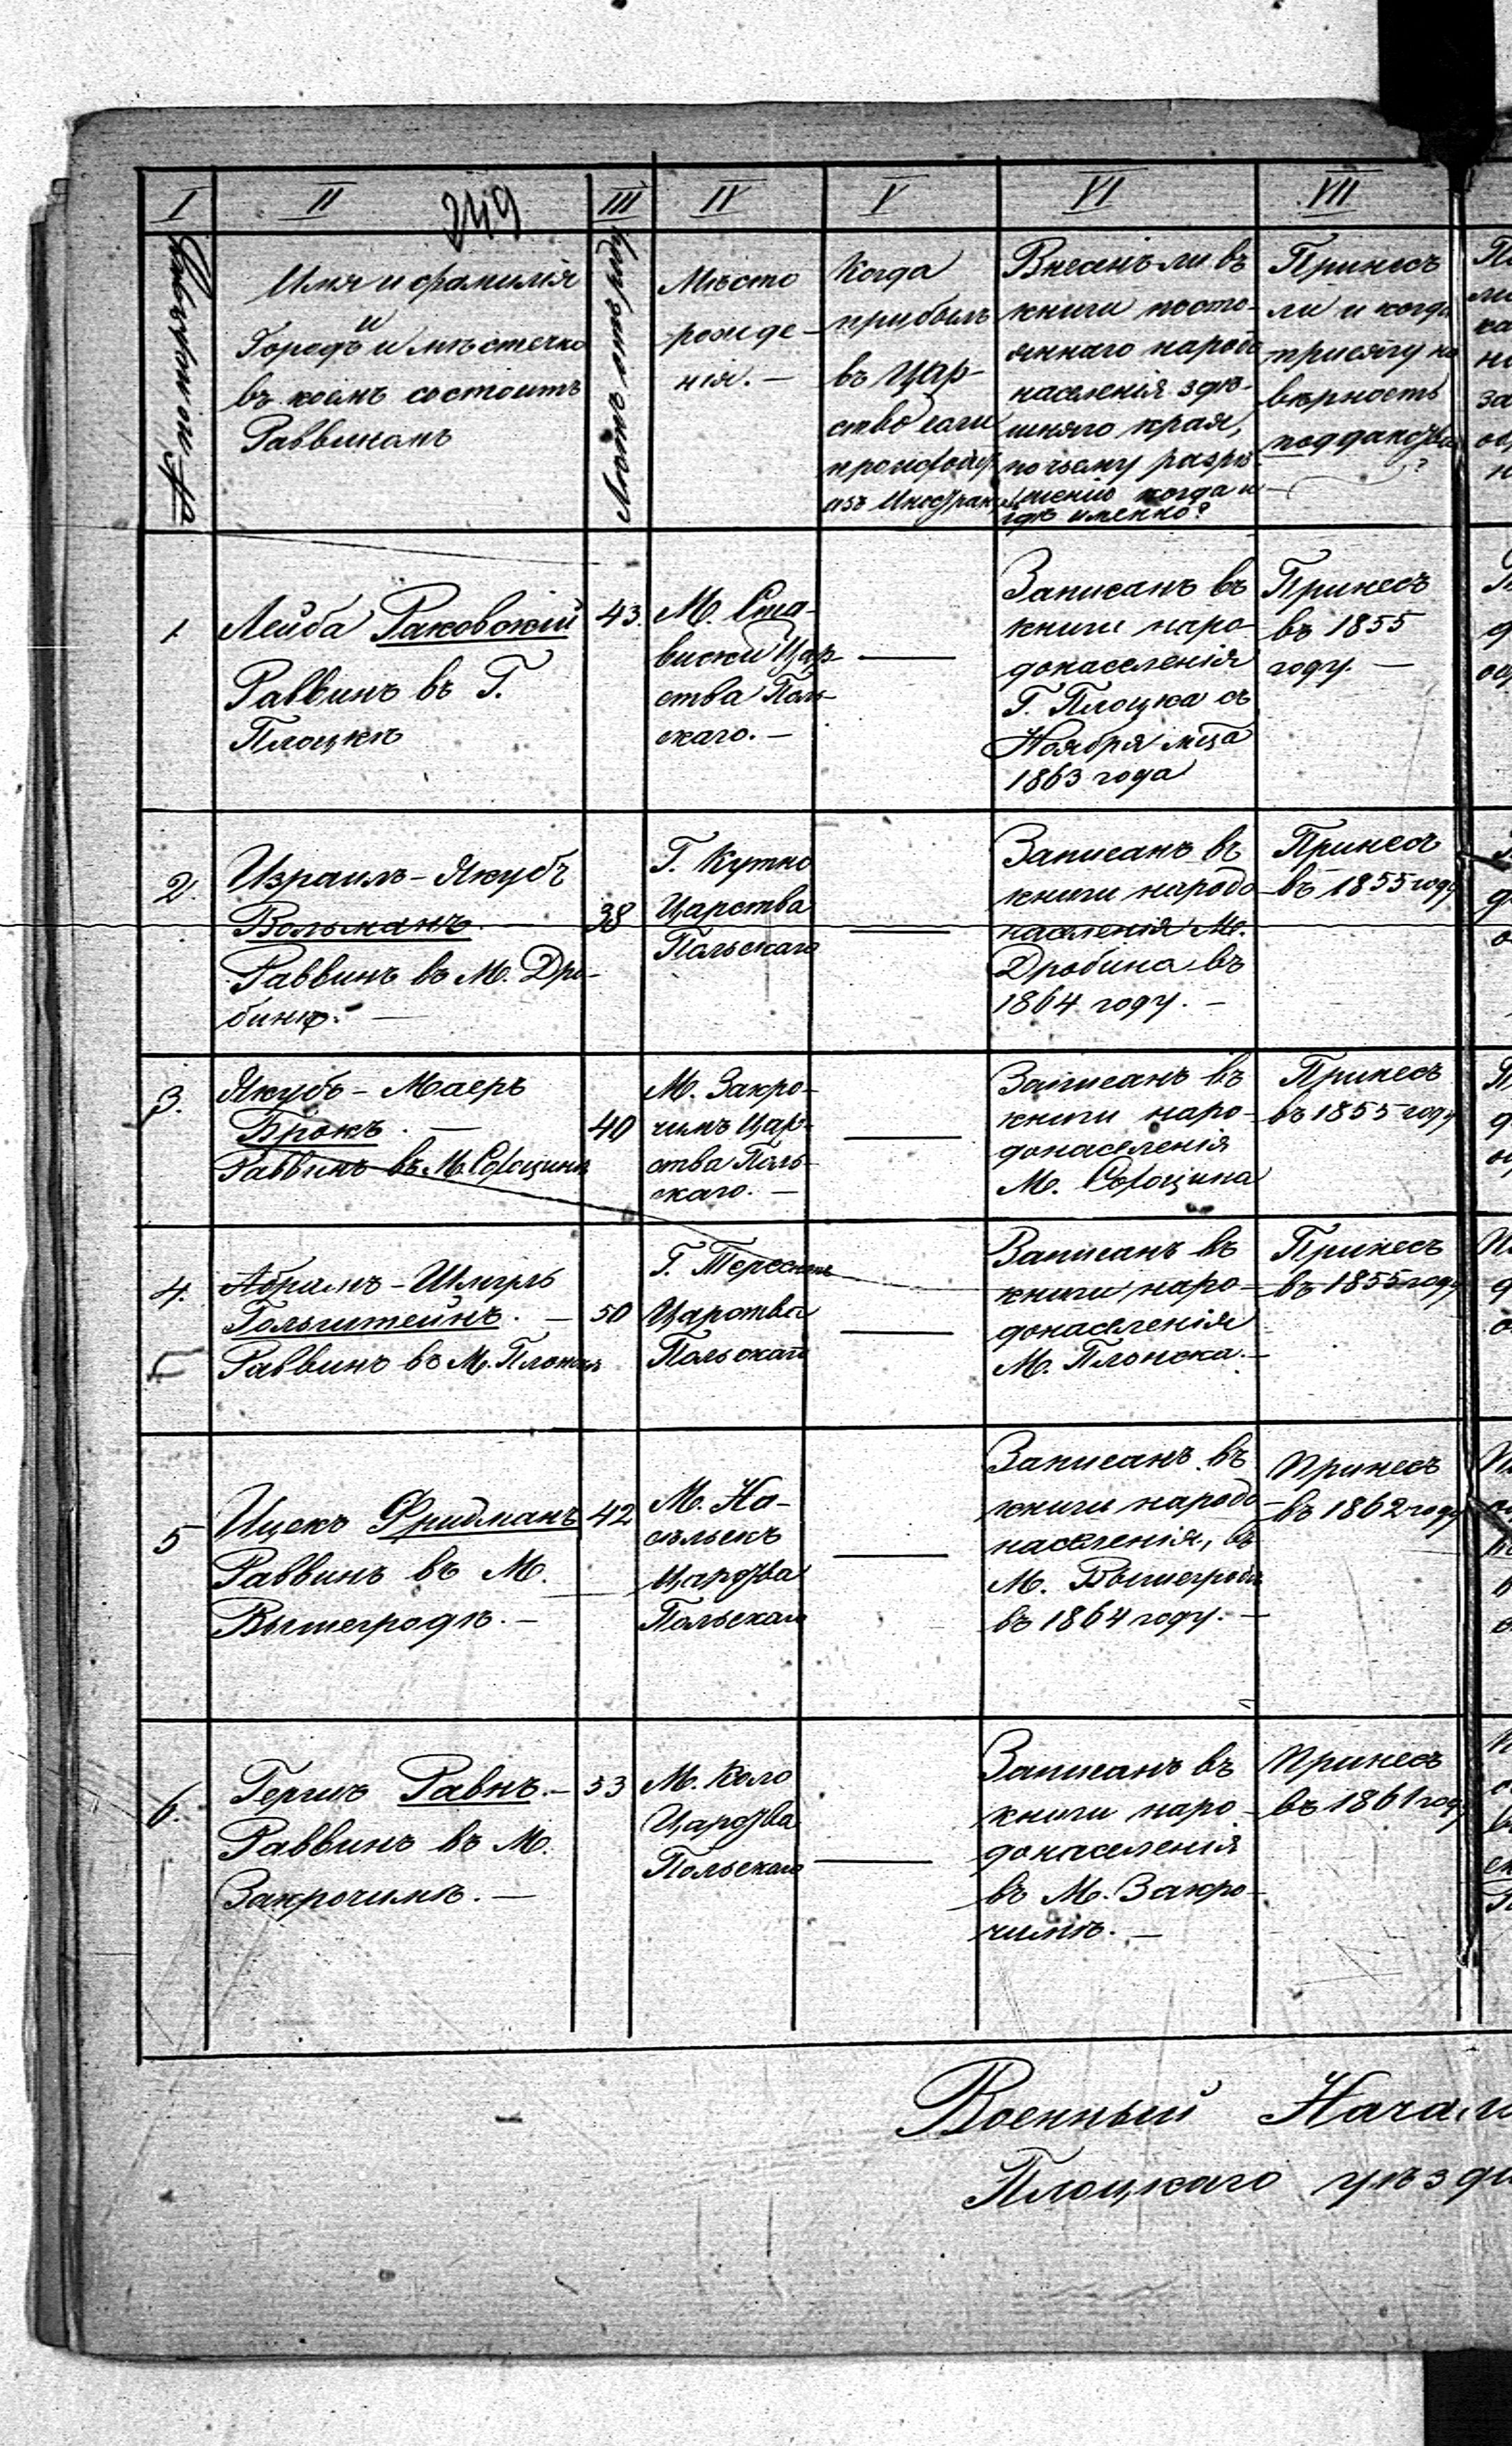 I II III IV V VI VII
249
№ по порядку
Имя и фамилія
и
Городъ и мѣстечко
въ коемъ состоитъ
Раввиномъ
Лѣтъ отъ роду
Мѣсто
рожде-
нія. —
Когда
прибылъ
въ Цар-
ство если
происходитъ
изъ Иностран
Внесенъ ли въ
книги посто-
яннаго народо
населенія здѣ-
шняго края,
по чьему разрѣ-
шенію когда и
гдѣ именно?
Принесъ
ли и когда
присягу на
вѣрность
подданства
?
1.
Лейба Раковскій
Раввинъ въ Г.
Плоцкѣ
43.
М. Ста-
виски Цар-
ства Поль-
скаго. —
—
Записанъ въ
книги наро-
донаселенія
Г. Плоцка съ
Ноября мца
1863 года
Принесъ
въ 1855
году. —
2.
Израиль-Якубъ
Вольманъ. —
Раввинъ въ М. Дро-
бинѣ. —
38
Г. Кутно
Царства
Польскаго
—
Записанъ въ
книги народо
населенія М.
Дробина въ
1864 году. —
Принесъ
въ 1855 году
3.
Якубъ-Маеръ
Брокъ. —
Раввинъ въ М.
40
М. Закро-
чимъ Цар-
ства Поль-
скаго. —
—
Записанъ въ
книги наро-
донаселенія
М.
Принесъ
въ 1855 году
4.
Абрамъ-Шмуль
Гольштейнъ. —
Раввинъ въ М. Плонскѣ
50
Г.
Царства
Польскаго
—
Записанъ въ
книги наро-
донаселенія
М. Плонска. —
Принесъ
въ 1855 году
5
Ицекъ Фридманъ
Раввинъ въ М.
Вышегродѣ. —
42
М. На-
сѣльскъ
Царства
Польскаго
—
Записанъ въ
книги народо-
населенія, въ
М. Вышегродѣ
въ 1864 году. —
Принесъ
въ 1862 году
6.
Гершъ Равнъ. —
Раввинъ въ М.
Закрочимѣ. —
53
М. Коло
Царства
Польскаго
—
Записанъ въ
книги наро-
донаселенія
въ М. Закро-
чимѣ. —
Принесъ
въ 1861 году
Военный Начал
Плоцкаго уѣзда